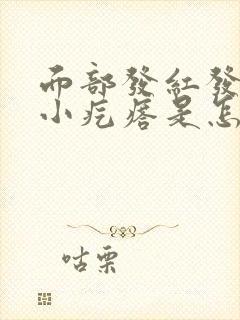 面部發紅發
小疙瘩是怎
咕栗